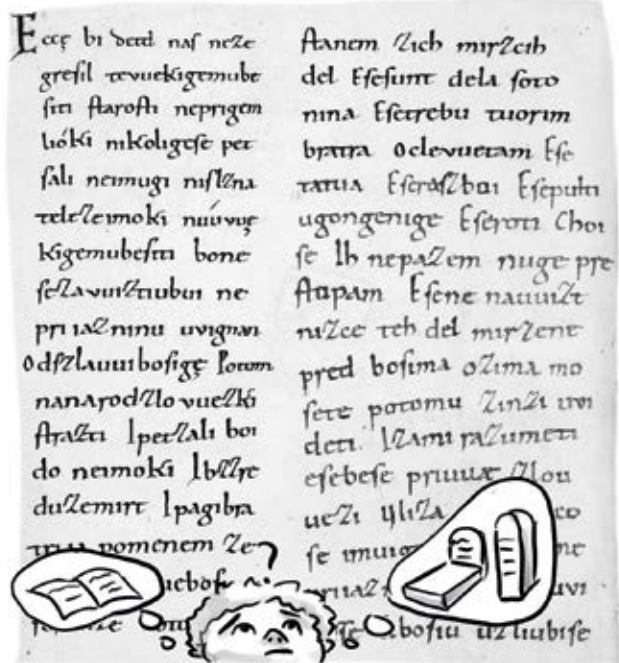 Eccę bi detd naſ neze
greſil tevuekigemube
ſiti ſtaroſti neprigem
lióki nikoligeſe pet
ſali neimugi niſlzna
teleZeimoki nuúvuę
Kigemubeſiti bone
ſeZavuiZtiubui ne
priiaZninu uvignan
OdſZlauuiboſigę Potom
nanarodZlovueZki
ſtraZti IpetZali boi
do neimoki IbZZre
duZemirt Ipagibra
pomenem Ze
ſtanem Zich mirZcih
del Eſeſunt dela ſoto
nina Eſetrebu tuorim
bratra Oclevuetam Eſe
tatua EſeraſZboi Eſepulti
ugongenige Eſeroti Choi
ſe Ih nepaZem nuge pre
ſtopam Eſene nauuiZt
niZce teh del mirZene
pred boſima oZima mo
ſete potomu ZinZi uvi
deti. IZami razumeti
eſebeſe priuuæ Zlou
ueZi
ſe
boſiu uZliubiſe